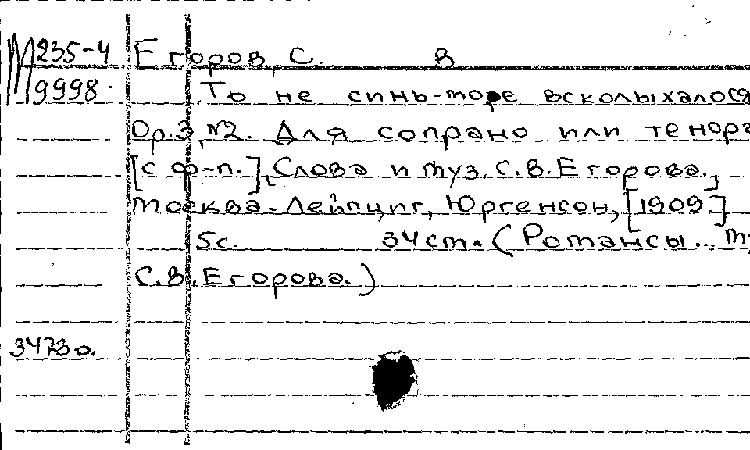 М235-4 Егоров, С. В
9998. То не синь-море всколыхалося
Op.3, №2. Для сопрано или тенора
[с ф-п.], Слова и муз. С.В.Егорова.,
Москва-Лейпциг, Юргенсон, [1909]
5с. 34см. (Романсы.. му
С.В.Егорова.)
3473о.